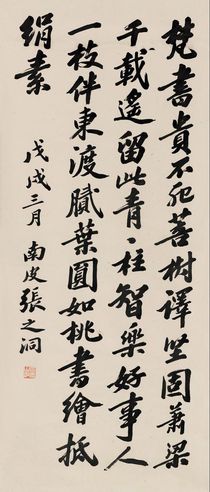 梵書貴不死菩樹譯堅固蕭梁
千載遙留此青〻柱智樂好事人
一枝伴東渡膩葉圓如桃書繪抵
絹素
戊戌三月 南皮張之洞